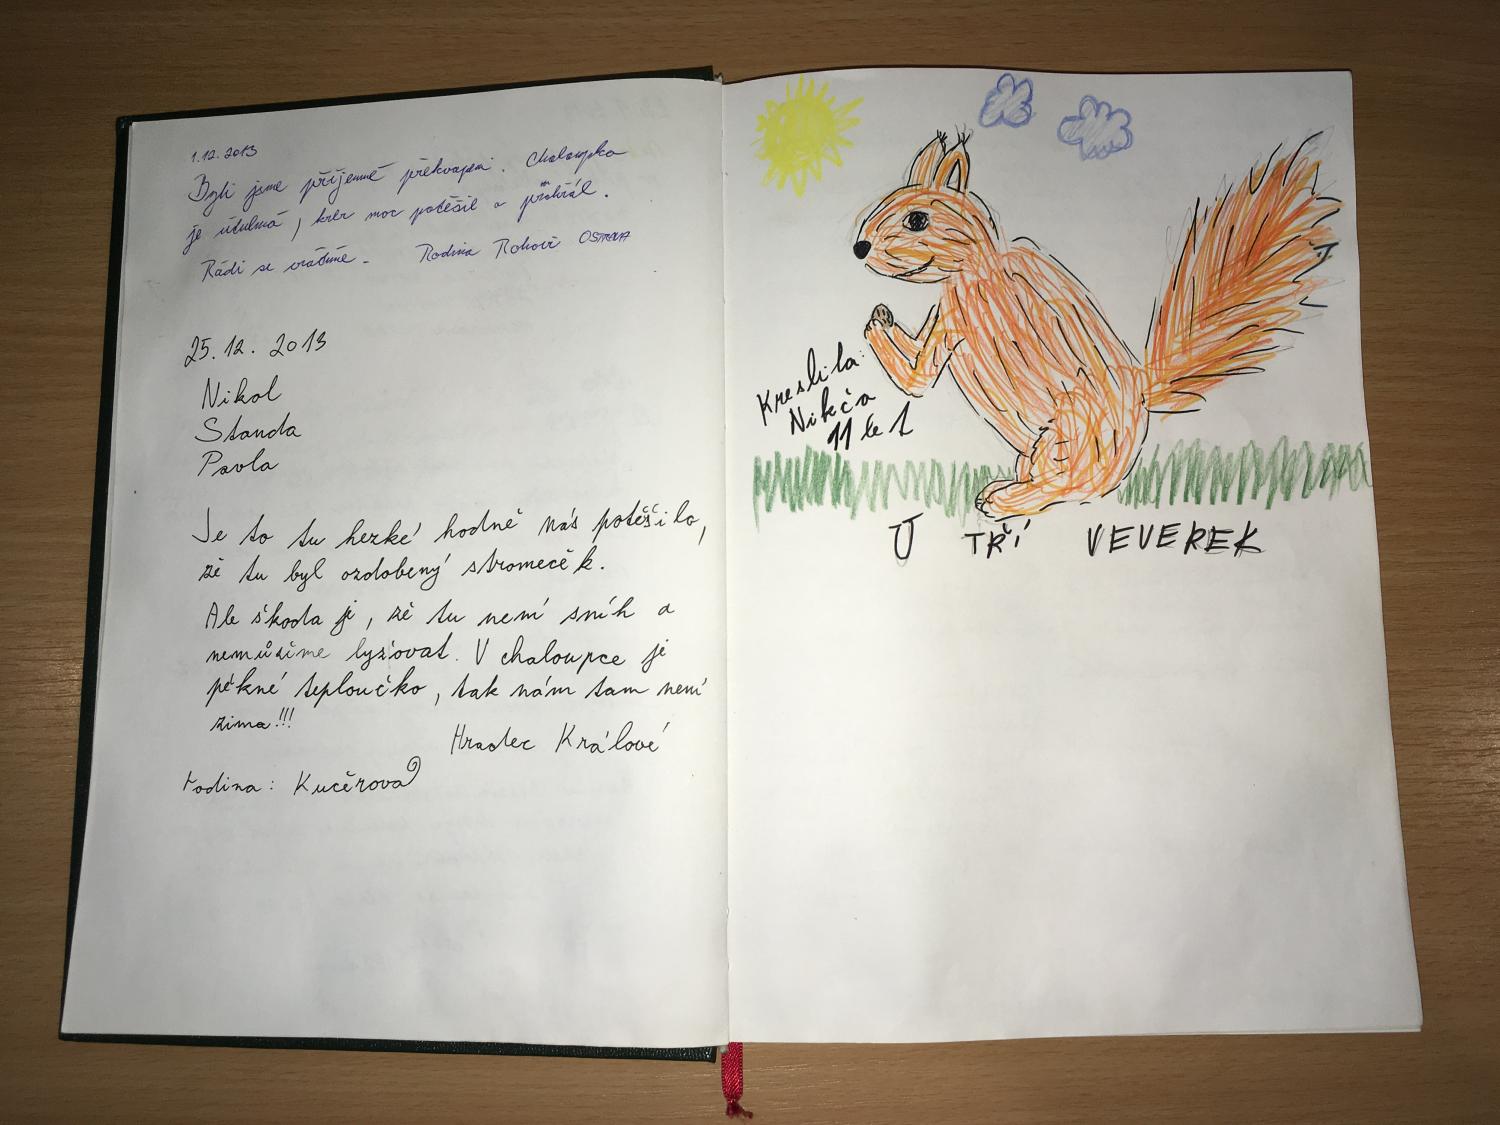 1.12.2013
Byli jsme příjemně překvapeni. Chaloupka
je útulná, krb moc potěšil a příhřál.
Rádi se vrátíme. Rodina OSTRAVA
25.12. 2013
Nikol
Standa
Pavla
Je to tu hezké hodně nás potěšilo,
že tu byl ozdobený stromeček.
Ale škoda je, že tu není sníh a
nemůžeme lyžovat. V chaloupce je
pěkné teploučko, tak nám tam není
zima!!!
Hradec Králové
rodina: Kučěrova
Kreslila:
Nikča
11 let
U TŘÍ VEVEREK